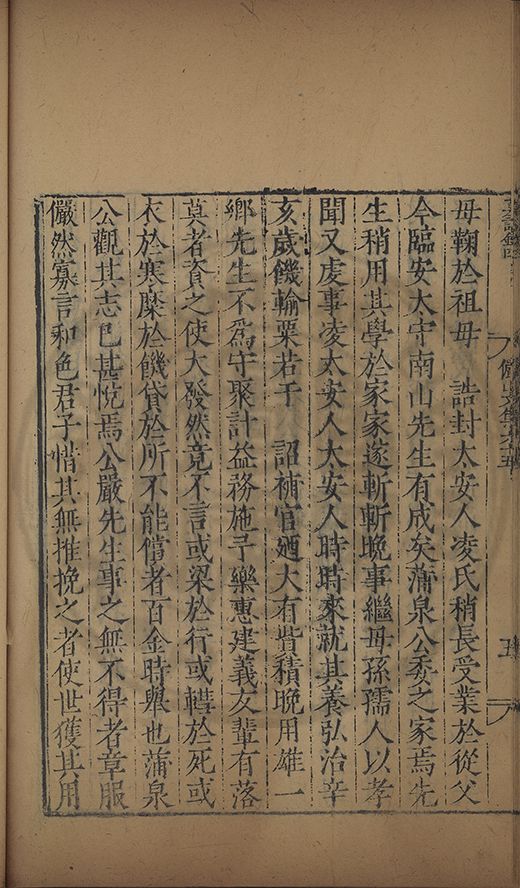 母鞠於祖母　誥封太安人凌氏稍長受業於從父
今臨安大守南山先生有成矣蒲泉公委之家焉先
生稍用其學於家家遂斬斬晚事繼母孫孺人以孝
聞又虔事凌太安人太安人時時來就其養弘治辛
亥歲饑輸粟若干　詔補官廼大有貲積晩用雄一
鄉先生不爲守聚計益務施予樂惠建義友輩有落
莫者資之使大發然竟不言或梁於行或轊於死或
衣於寒糜於饑貸於所不能償者百金時舉也蒲泉
公觀其志已甚悅焉公嚴先生事之無不得者章服
儼然寡言和色君子惜其無推挽之者使世獲其用
五